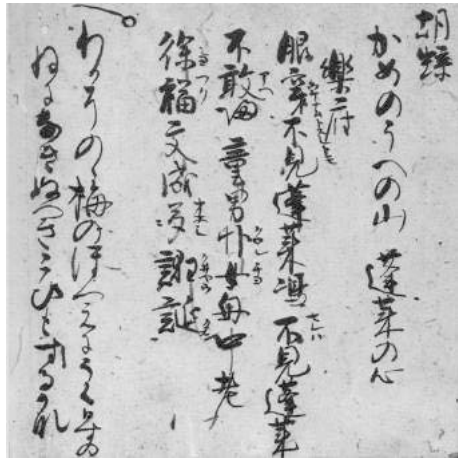 胡蝶
かめのうへの山 蓬莱の心
樂府
眼穿不見蓬莱嶋 不見蓬莱
不敢歸 童男丱女舟中老
徐福文成多誑誕
わかそのゝ梅のほつえにうくひすの
ねになきぬへきこひもするかな